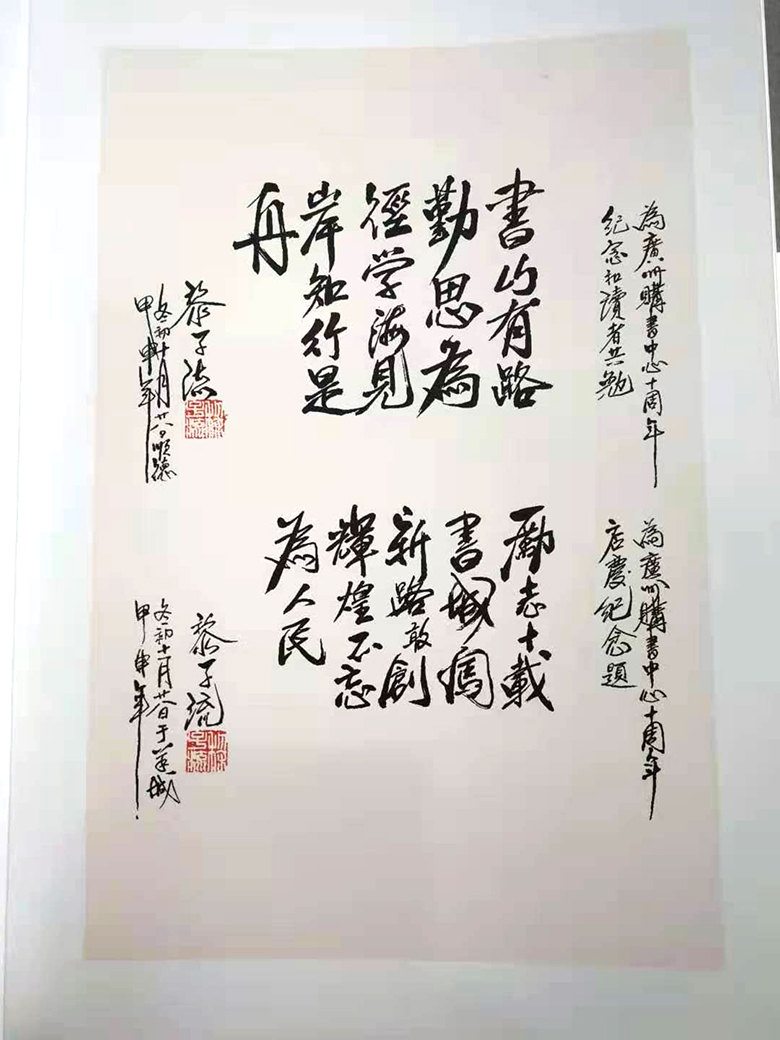 為廣州購書中心十周年
紀念和讀者共勉
書山有路
勤思為
徑学海見
岸知行是
舟
黎子流
冬初十月 順德
甲申年
為廣州購書中心十周年
店慶紀念題
勵志十載
書城闯
新路敢創
輝煌不忘
為人民
黎子流
冬初十月 于羊城
甲申年